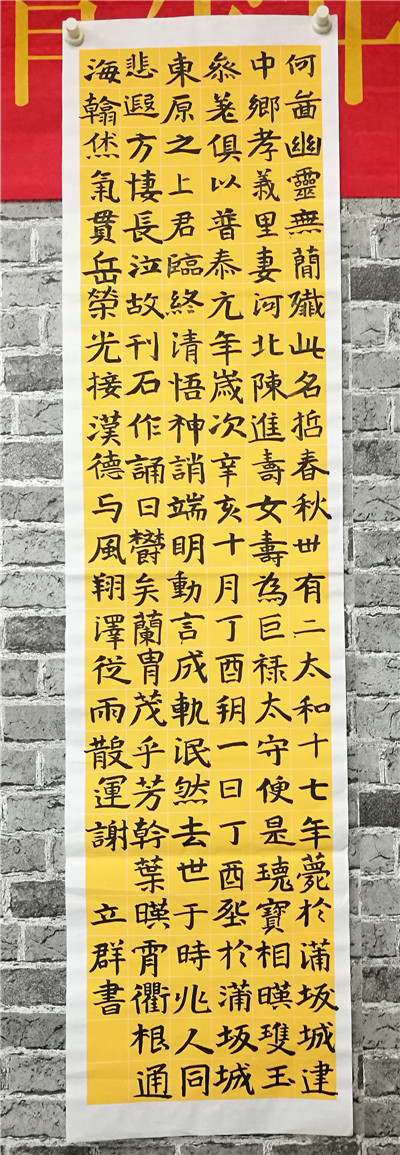 何啚幽靈無蕳殲此名哲春秋卅有二太和十七年薨於蒲坂城建
中鄉孝義里妻河北陳進壽女壽為巨禄太守便是瑰寶相暎瓊玉
叅差俱以普泰元年歲次辛亥十月丁酉朔一日丁酉塟於蒲坂城
東原之上君臨終清悟神誚端明動言成軌泯然去世于時兆人同
悲遐方悽長泣故刊石作誦曰欝矣蘭胄茂乎芳幹葉暎霄衢根通
海翰烋氣貫岳榮光接漢德与風翔澤從雨散運謝 立群書